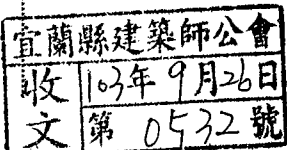 宜蘭縣建築師公會
收文
103年9月26日
第 0532 號